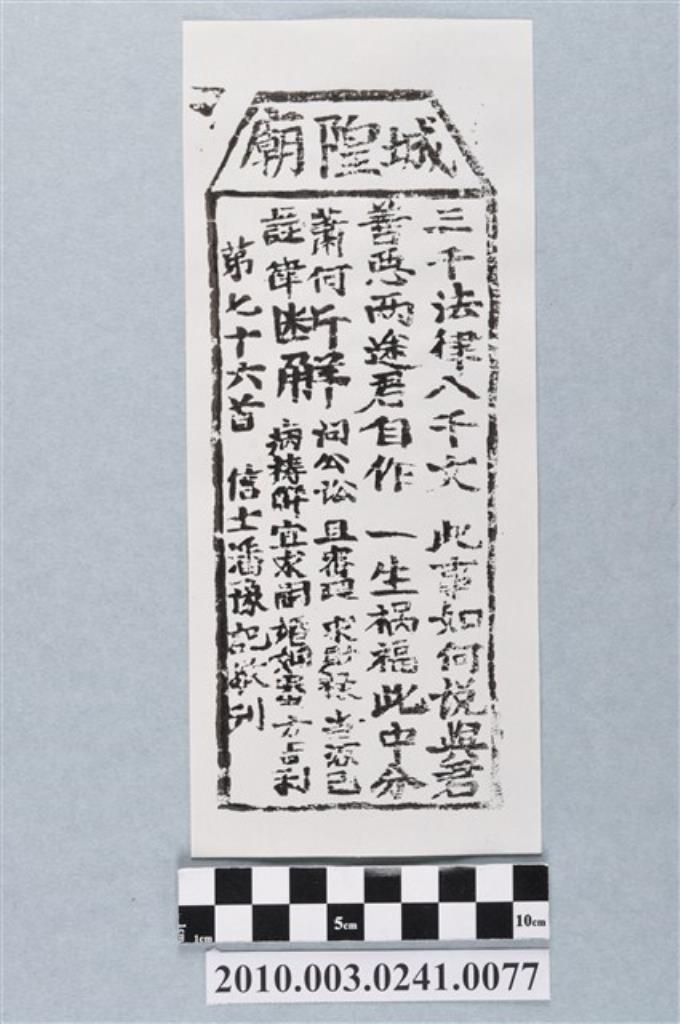 城隍廟
三千法律八千文 此事如何說與君
善惡兩途君自作 一生禍福此中分
蕭何斤解 問公訟 且審理 求財祿 當派己
註律断解 病禱解宜求嗣婚姻要方吉利
第七十六首 信士潘 記敬刊
5cm
1cm
10cm
2010.003.0241.0077